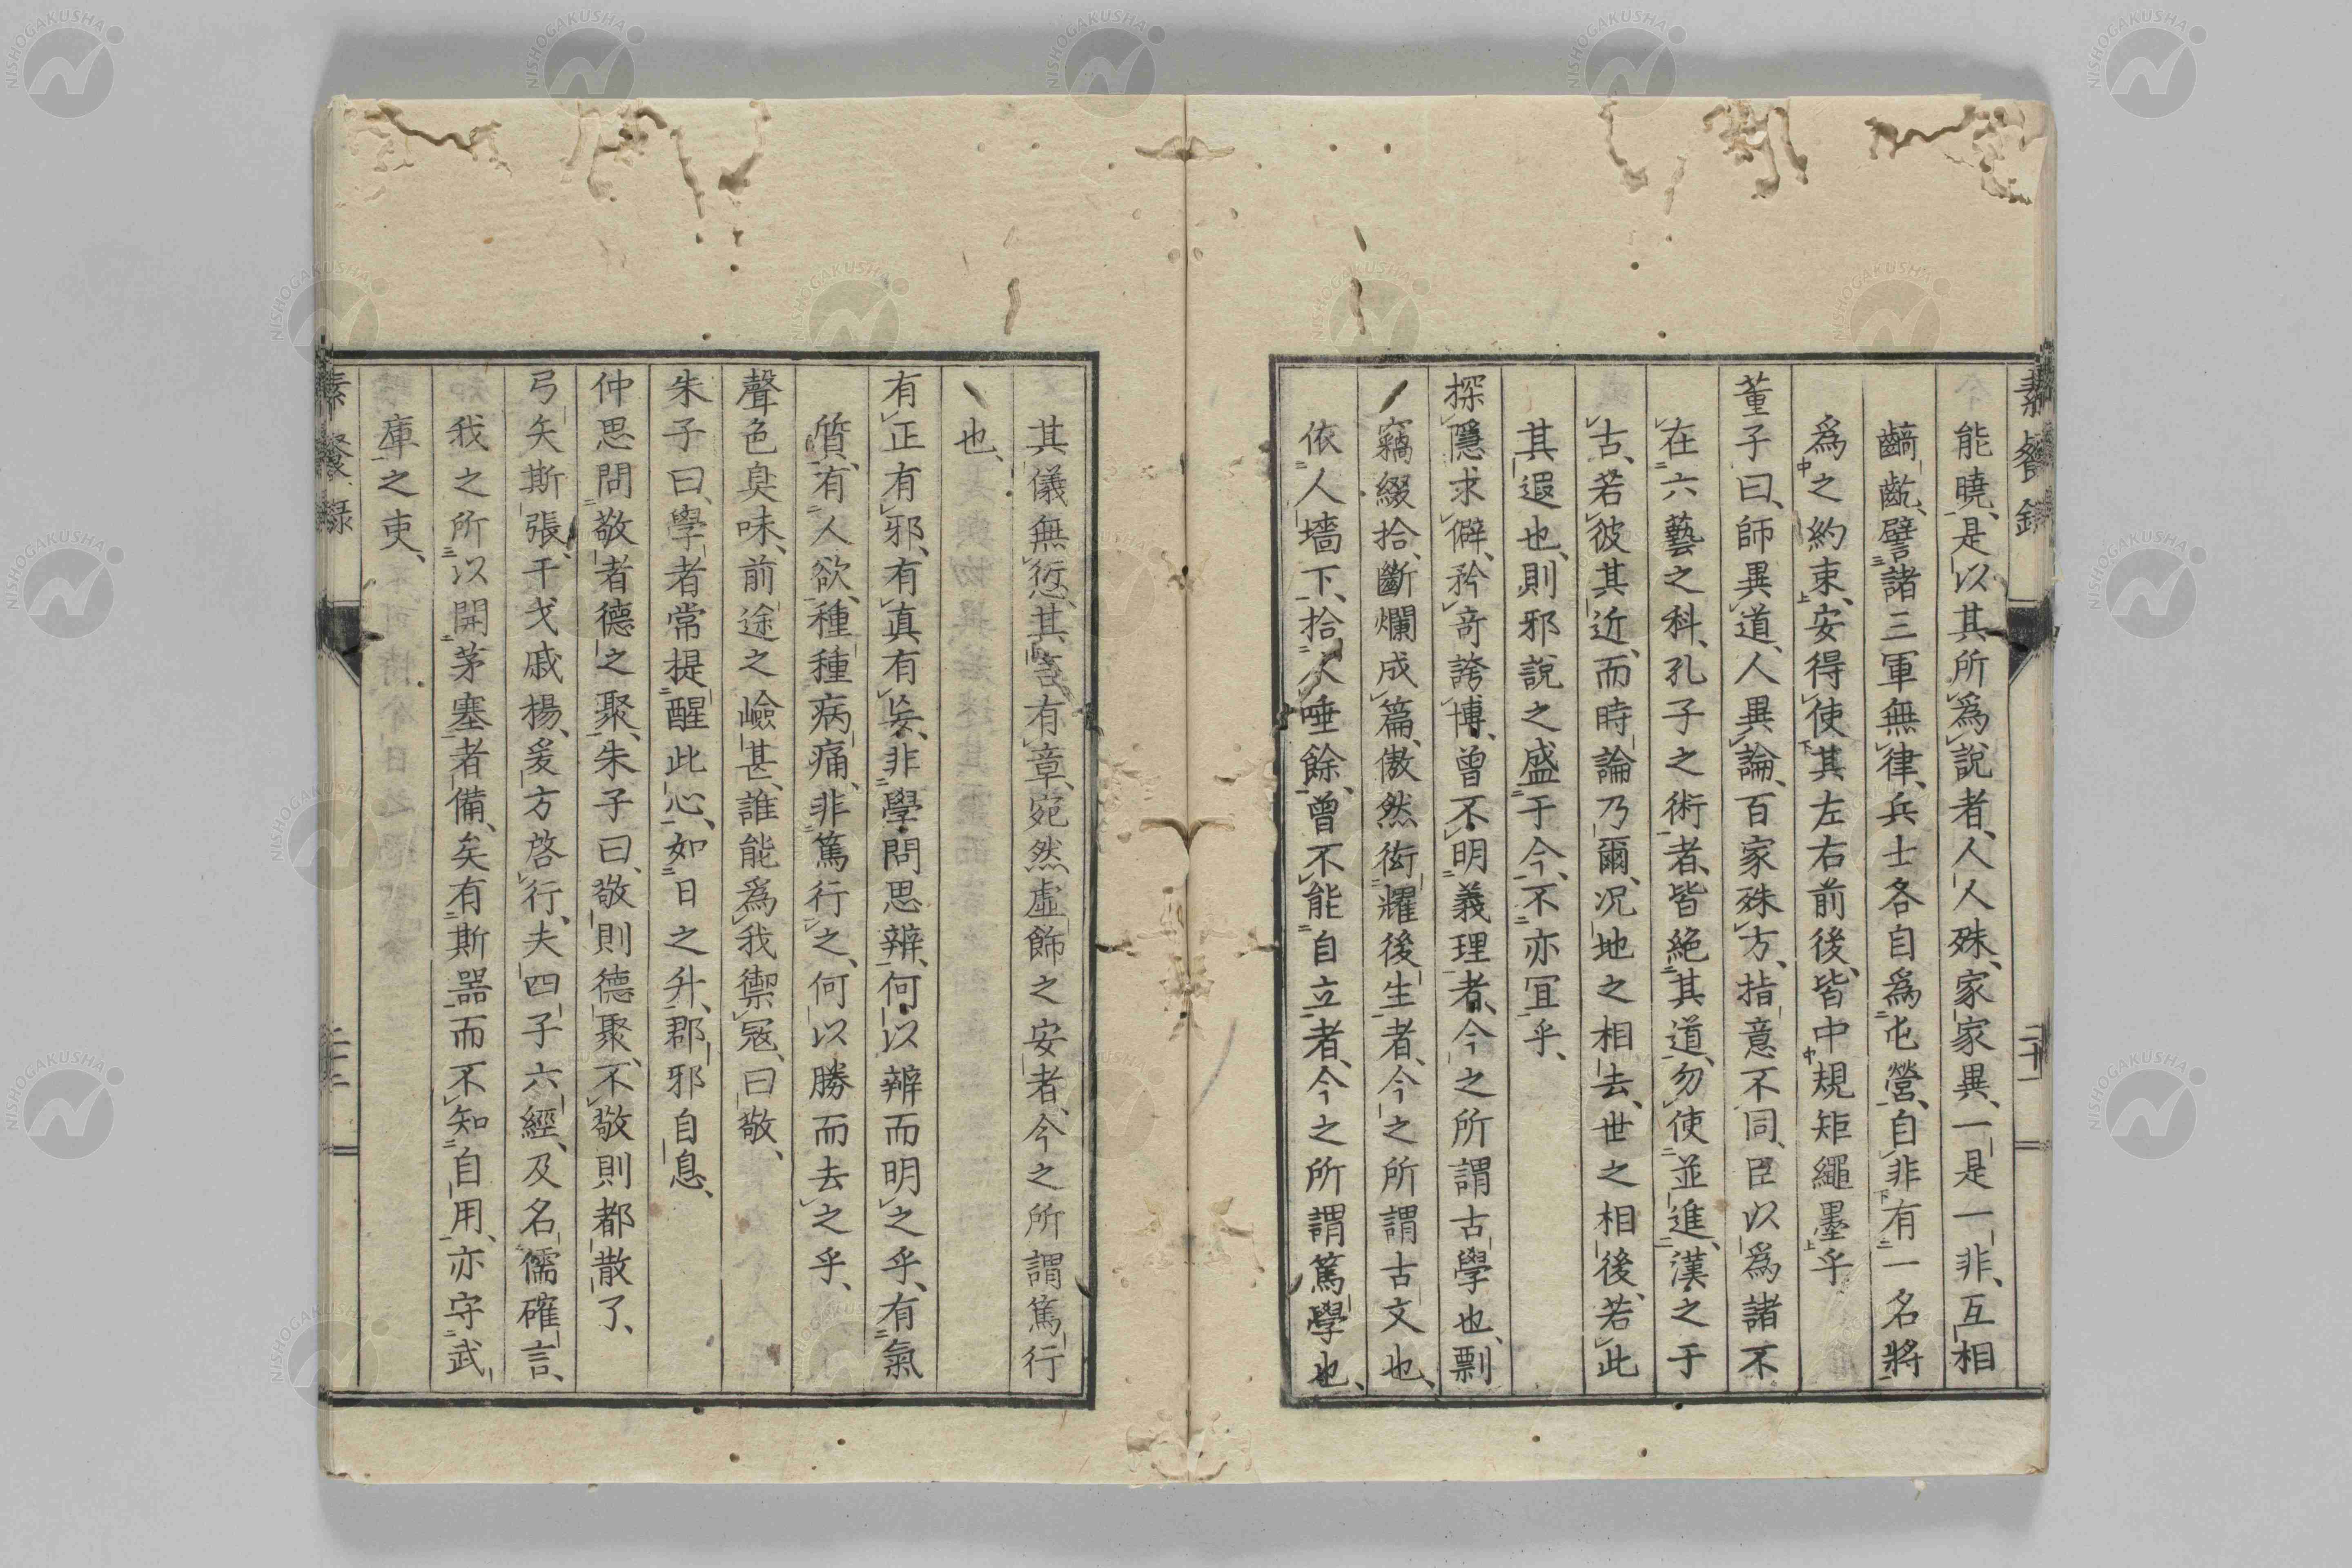 素餐錄
二十一
能曉、是以其所爲說者、人人殊、家家異、一是一非、互相
齮齕、譬諸三軍無律、兵士各自爲屯營、自非有一名將
爲之約束、安得使其左右前後、皆中規矩繩墨乎
董子曰、師異道、人異論、百家殊方、指意不同、臣以爲諸不
在六藝之科、孔子之術者、皆絶其道、勿使並進、漢之于
古、若彼其近、而時論乃爾、况地之相去、世之相後、若此
其遐也、則邪說之盛于今、不亦冝乎、
探隱求僻、矜奇誇博、曾不明義理者、今之所謂古學也、剽
竊綴拾、斷爛成篇、傲然衒耀後生者、今之所謂古文也、
依人墻下、拾人唾餘、曾不能自立者、今之所謂篤學也、
其儀無愆、其言有章、宛然虛飾之安者、今之所謂篤行
也、
有正有邪、有真有妄、非學問思辨、何以辨而明之乎、有氣
質、有人欲、種種病痛、非篤行之、何以勝而去之乎、
聲色臭味、前途之嶮甚、誰能爲我禦冦、曰敬、
朱子曰、學者常提醒此心、如日之升、郡邪自息、
仲思問敬者德之聚、朱子曰、敬則德聚、不敬則都散了、
弓矢斯張、干戈戚楊、爰方啓行、夫四子六經、及名儒確言、
我之所以開茅塞者備矣、有斯器而不知自用、亦守武
庫之吏、
素餐錄
二十二